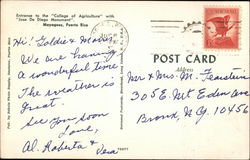 Entrance to the "College of Agriculture" with
"Jose De Diego Monument".
Mayaguez, Puerto Rico
Hi! Goldie & Morris,
We are having
a wonderful time
The weather is
great.
See you soon
Love,
Al. Roberta &
Vera
POST CARD
Address
Mr & Mrs. M. Feinstein
305 E. Mt. Eden Ave
Bronx, N.Y. 10456